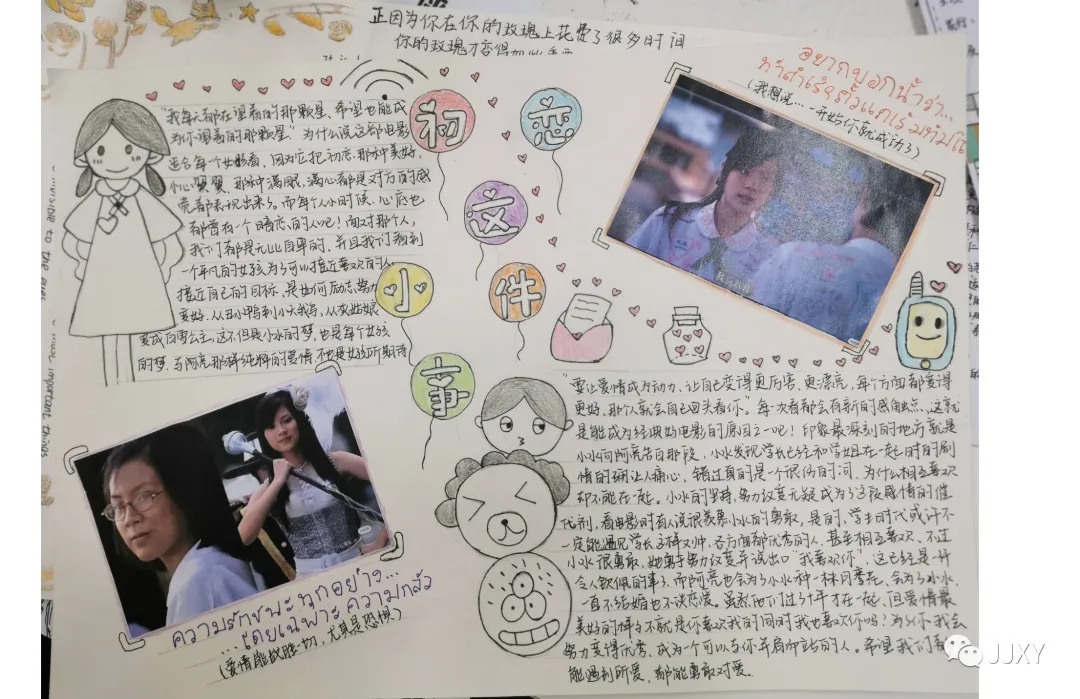 正因为你在你的玫瑰上花费了很多时间
你的玫瑰才变得如此重要
อยากบอกน้ำว่า...
(我想说...一开始你就成功了)
初恋
这
小件
事
"我每天都在望着的那颗星、希望也能成
为你望着的那颗星"为什么说这部电影
适合每个女孩看,因为它把初恋那种美好,
小心翼翼、那种满眼,满心都是对方的感
觉都表现出来了。而每个人小时候、心底也
都曾有一个暗恋的人吧!面对那个人,
我们都是无比自卑的、并且我们看到
一个平凡的女孩为了可以接近喜欢的人、
接近自己的目标,是如何励志、努力
变好、从丑小鸭到小天鹅、从灰姑娘
变成白雪公主,这不但是小水的梦,也是每个女孩
的梦、与阿亮那样纯粹的爱情、不也是女孩所期待
"要让爱情成为动力、让自己变得更厉害、更漂亮,每个方面都变得
更好、那个人就会自己回头看你"。每一次看都会有新的感触点、这就
是能成为经典好电影的原因之一吧!印象最深刻的地方就是
小水向阿亮告白那段,小水发现学长已经和学姐在一起时的剧
情的确让人痛心、错过真的是个很伤的词、为什么相互喜欢
却不能在一起。小水的坚持、努力改变无疑成为了这段感情的催
化剂,看电影时有人说很羡慕小水的勇敢,是的,学生时代或许不
一定能遇见学长这样又帅、各方面都优秀的人、甚至相互喜欢、不过
小水很勇敢、她勇于努力改变并说出"我喜欢你"、这已经是一件
令人钦佩的事了。而阿亮也会为了小水种一株同季花、会为了小水、
一直不结婚也不谈恋爱。虽然他们过了十年才在一起、但爱情最
美好的样子不就是你喜欢我的同时我也喜欢你吗?为了你我会
努力变得优秀、成为一个可以与你并肩而站的人。希望我们都
能遇到所爱,都能勇敢对爱。
ความรักชนะทุกอย่าง...
...โดยเฉพาะความกลัว
(爱情能战胜一切,尤其是恐惧)
invisible to the eyes
most important things
JJXY